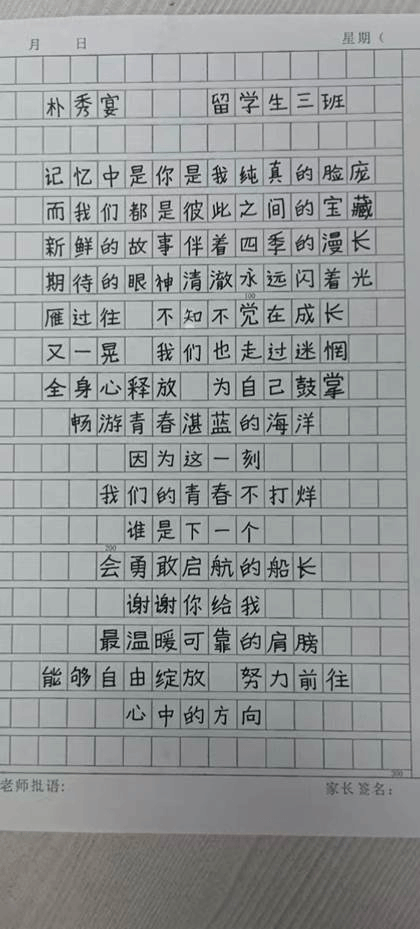 月 日 星期（
朴秀宴 留学生三班
记忆中是你是我纯真的脸庞
而我们都是彼此之间的宝藏
新鲜的故事伴着四季的漫长
期待的眼神清澈永远闪着光
100
雁过往 不知不觉在成长
又一晃 我们也走过迷惘
全身心释放 为自己鼓掌
畅游青春湛蓝的海洋
因为这一刻
我们的青春不打烊
谁是下一个
200
会勇敢启航的船长
谢谢你给我
最温暖可靠的肩膀
能够自由绽放 努力前往
心中的方向
300
老师批语: 家长签名: